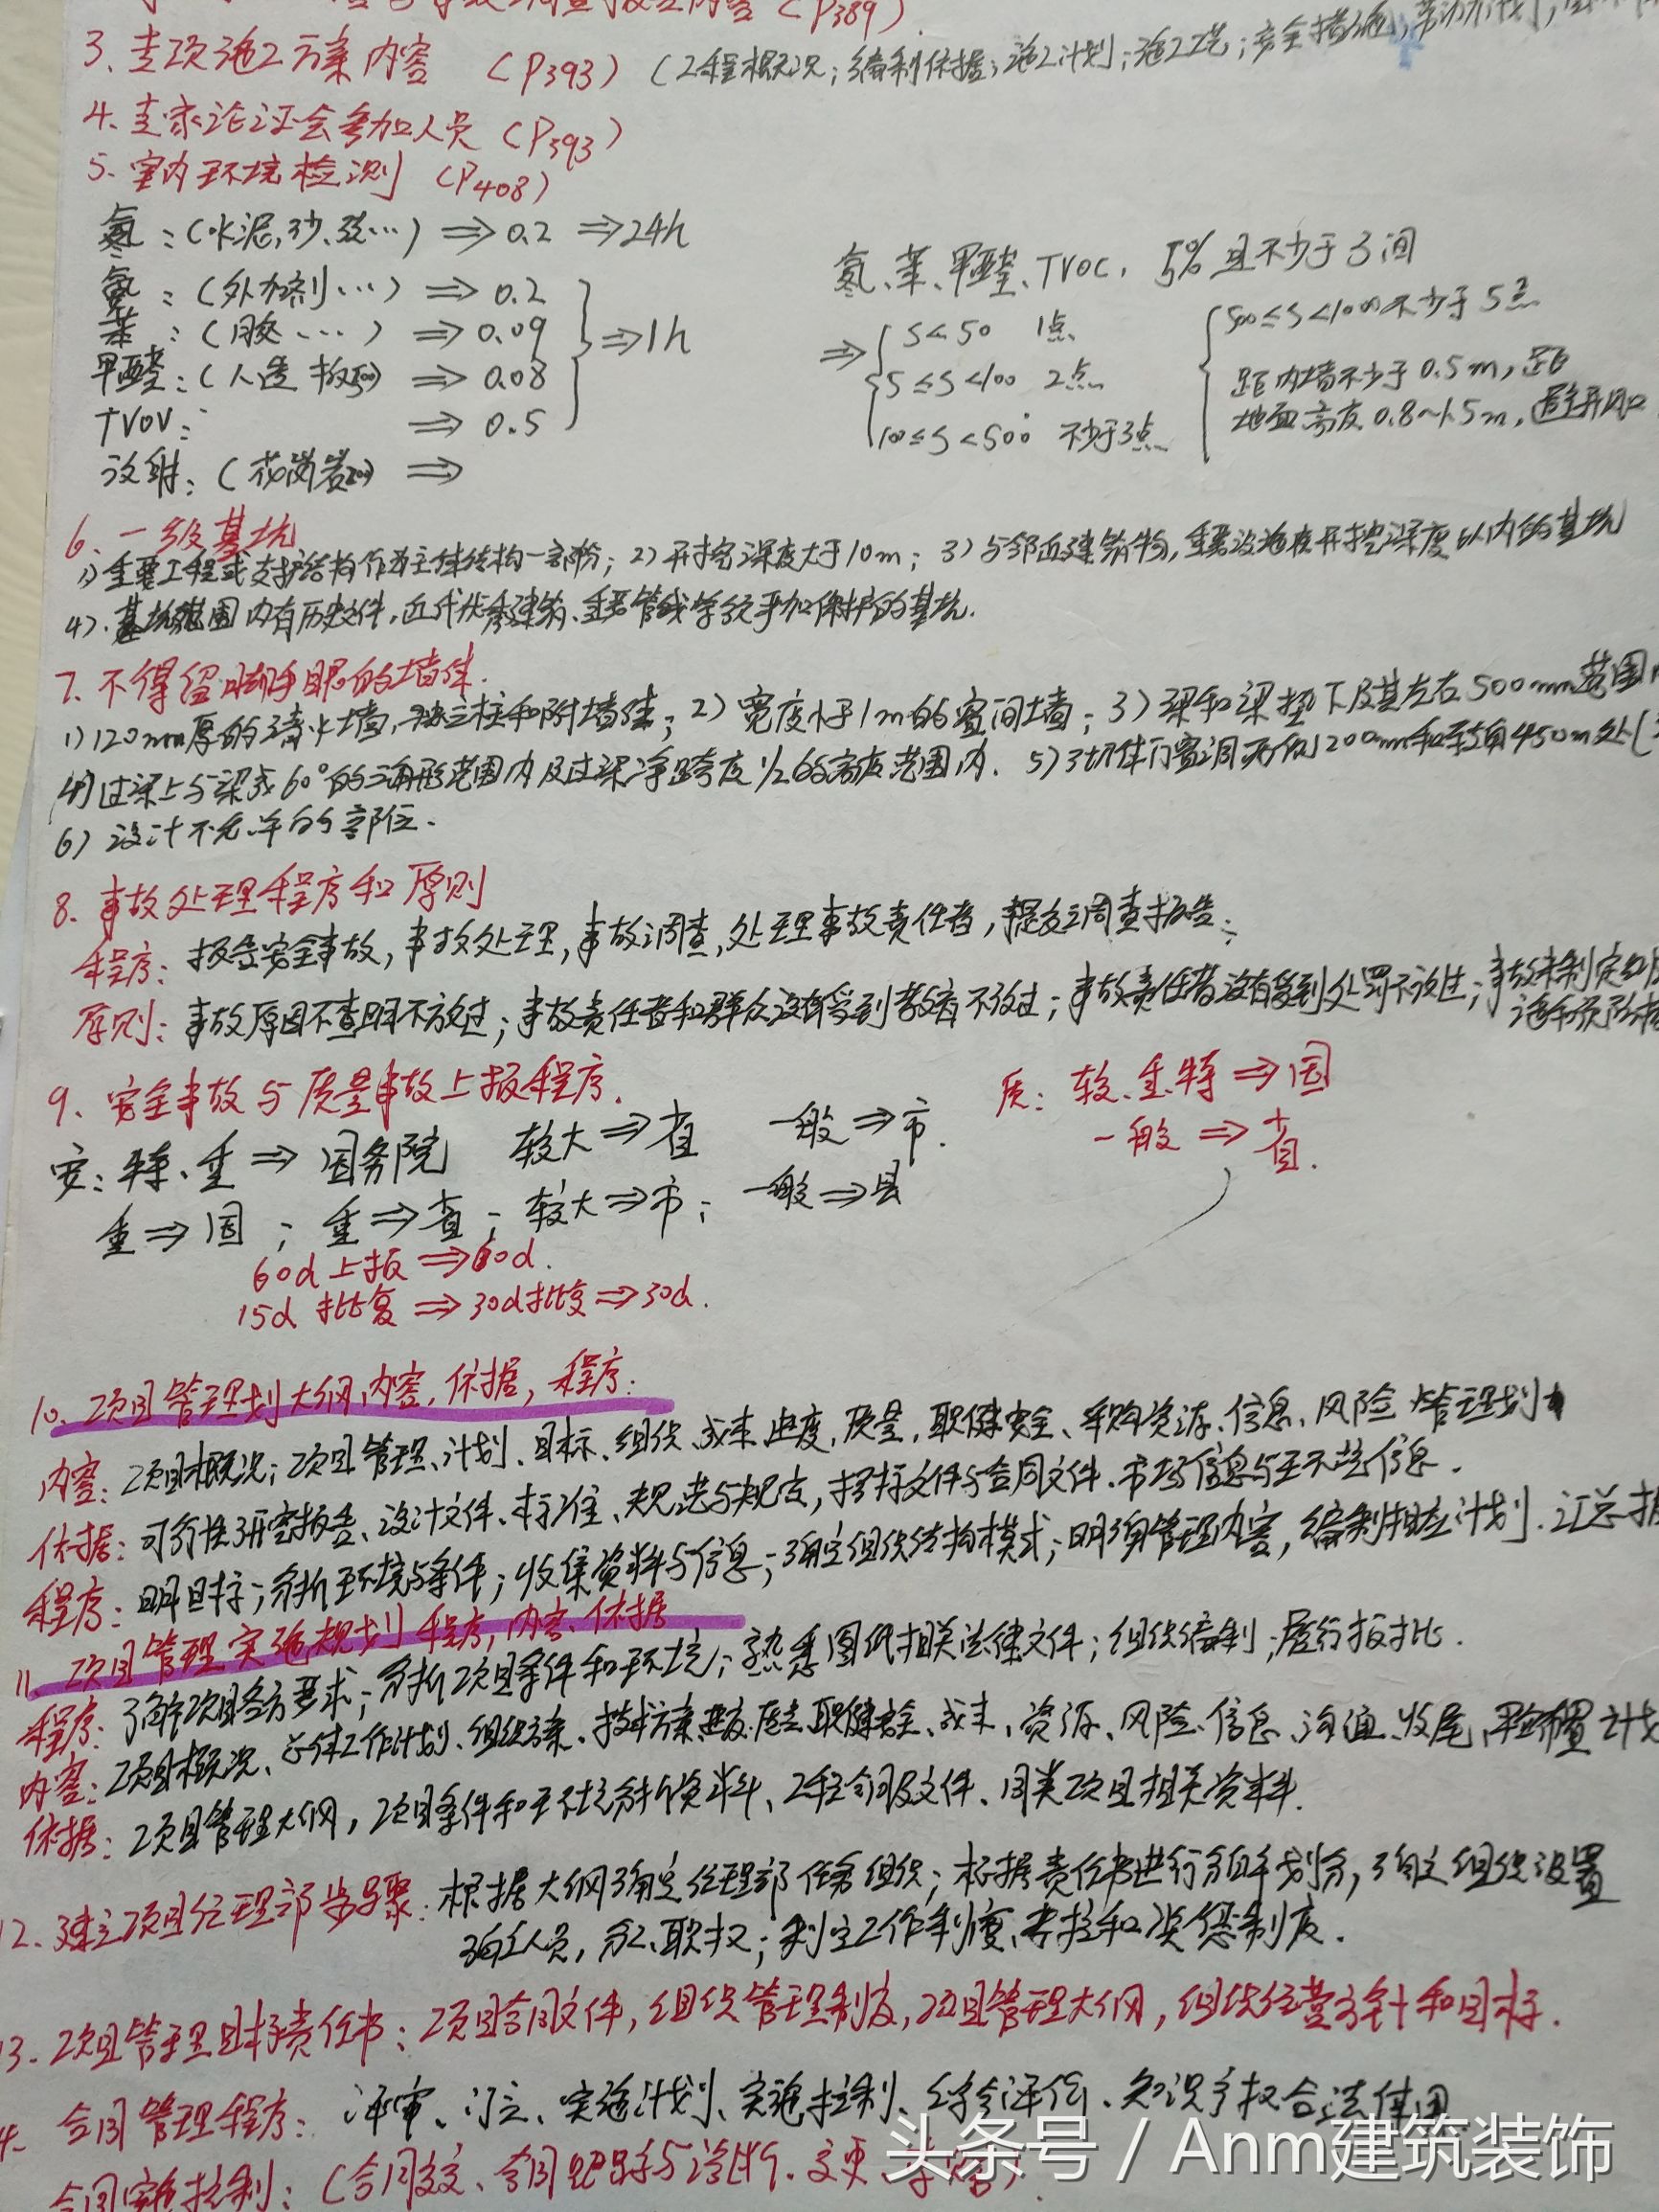 (P389)
3、专项施工方案内容 (P393) (工程概况;编制依据;施工计划;施工工艺;安全措施;劳动力计划;
4、专家论证会参加人员 (P393)
5、室内环境检测 (P408)
氡:(水泥,沙、砼…) ⇒0.2 ⇒24h
氨:(外加剂…) ⇒0.2
苯:(胶…) ⇒0.09 }⇒1h
甲醛:(人造板) ⇒0.08
TVOV: ⇒0.5
放射:(花岗岩) ⇒
氨、苯、甲醛、TVOC, 5%且不少于3间
⇒{ S<50 1点
5≤S<100 2点
100≤S<500 不少于3点
500≤S<1000不少于5点
距内墙不少于0.5m,距
地面高度0.8~1.5m,避开风口
6、一级基坑
1)重要工程或支护结构作为主体结构一部份;2)开挖深度大于10m;3)与邻近建筑物,重要设施在开挖深度以内的基坑
4)、基坑范围内有历史文件,近代优秀建筑、重要管线等须严加保护的基坑.
7、不得留脚手眼的墙体.
1)120mm厚的清水墙,独立柱和附墙柱;2)宽度小于1m的窗间墙;3)梁和梁垫下及其左右500mm范围内
4)过梁上与梁成60°的三角形范围内及过梁净跨度1/2的高度范围内. 5)砌体门窗洞两侧200mm和转角450m处(
6)设计不允许的部位.
8、事故处理程序和原则
程序:报告安全事故,事故处理,事故调查,处理事故责任者,提交调查报告;
原则:事故原因不查明不放过;事故责任者和群众没有受到教育不放过;事故责任者没有受到处罚不放过;事故未制定
9、安全事故与质量事故上报程序.
质:较.重.特⇒国
一般⇒省.
安:特、重⇒国务院 较大⇒省 一般⇒市.
重⇒国;重⇒省;较大⇒市;一般⇒县
60d上报⇒60d.
15d批复⇒30d批复⇒30d.
10、项目管理划大纲,内容,依据,程序:
内容:项目概况;项目管理、计划、目标、组织、成本.进度,质量,职健安全、采购资源、信息、风险
依据:可行性研究报告、设计文件、标准、规范与规定,招标文件与合同文件、市场信息与环境信息.
程序:明目标;分析环境与条件;收集资料与信息;确定组织结构模式;明确管理内容,编制相应计划.汇总
11、项目管理实施规划程序,内容、依据
程序:了解项目各方要求;分析项目条件和环境;熟悉图纸相关法律文件;组织编制;履行报批.
内容:项目概况、总体工作计划、组织方案、技术方案.进度.质量.职健安全、成本,资源、风险、信息、沟通、收尾、平面布置计划
依据:项目管理大纲,项目条件和环境分析资料、工程合同及文件、同类项目相关资料.
12、建立项目经理部步骤:根据大纲确定经理部任务组织;根据责任书进行分目标划分,确定组织设置
确定人员,分工、职权;制定工作制度、考核和奖惩制度.
13、项目管理目标责任书:项目合同文件,组织管理制度,项目管理大纲,组织经营方针和目标.
合同管理程序:评审、订立、实施计划、实施控制、综合评价、知识产权合法使用
合同实施控制:(合同交
头条号 / Anm建筑装饰